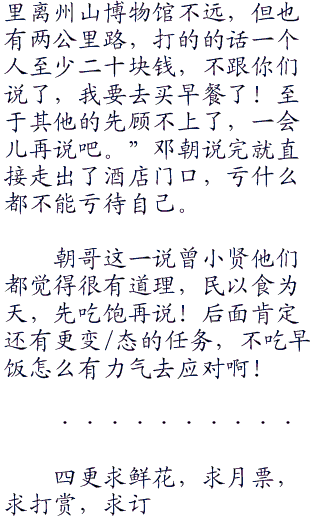 里离州山博物馆不远，但也
有两公里路，打的的话一个
人至少二十块钱，不跟你们
说了，我要去买早餐了！至
于其他的先顾不上了，一会
儿再说吧。”邓朝说完就直
接走出了酒店门口，亏什么
都不能亏待自己。
朝哥这一说曾小贤他们
都觉得很有道理，民以食为
天，先吃饱再说！后面肯定
还有更变/态的任务，不吃早
饭怎么有力气去应对啊！
．．．．．．．．．．
四更求鲜花，求月票，
求打赏，求订